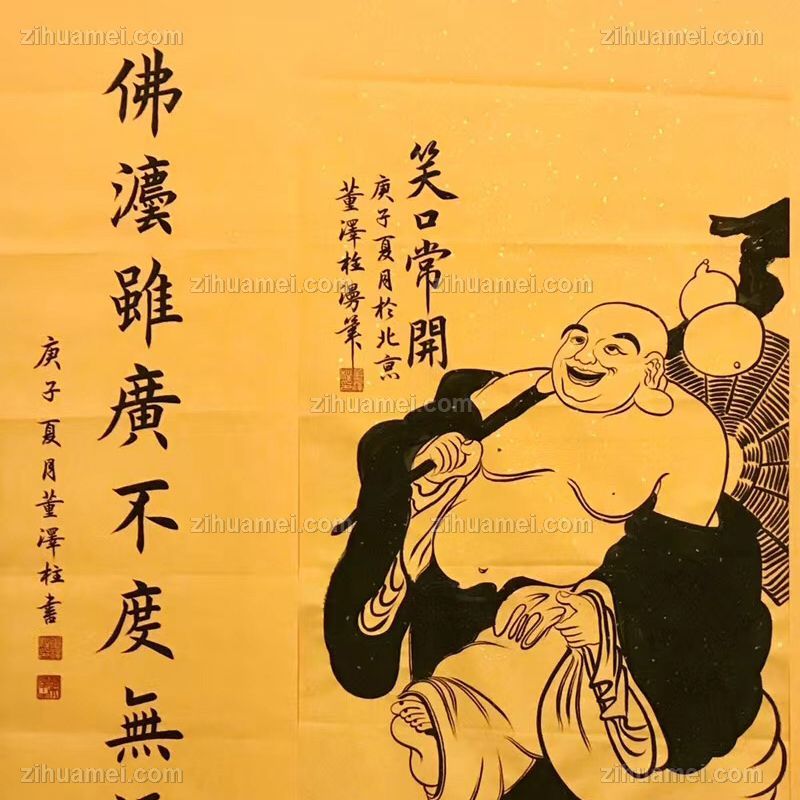 笑口常開
庚子夏月於北京
董澤柱漫筆
佛灋雖廣不度無
庚子夏月董澤柱書
zihuamei.com
zihuamei.com
zihuamei.com
zihuamei.com
zihuamei.com
zihuamei.com
zihuamei.com
zihuamei.com
zihuamei.com
zihuamei.com